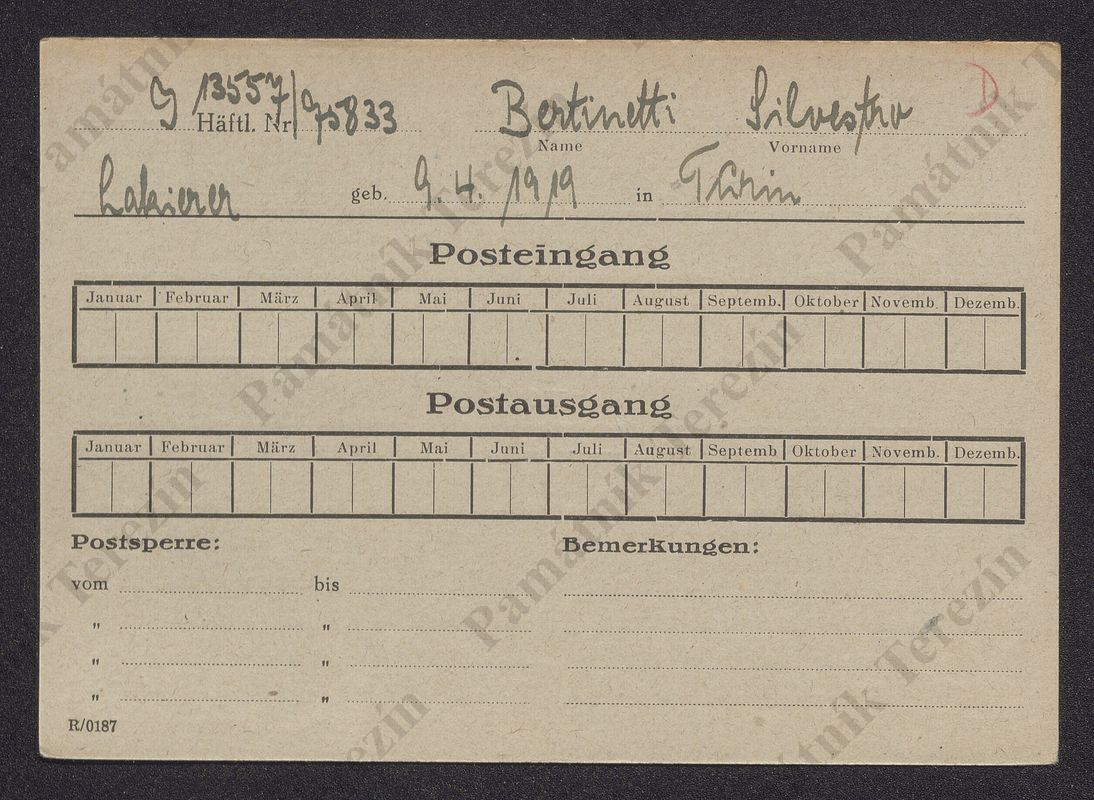 J 13557/75833 Bertinetti Silvestro D
Häftl. Nr. Name Vorname
Lakierer geb. 9.4.1919 in Turin
Posteingang
Januar Februar März April Mai Juni Juli August Septemb. Oktober Novemb. Dezemb.
Postausgang
Januar Februar März April Mai Juni Juli August Septemb Oktober Novemb. Dezemb.
Postsperre: Bemerkungen:
vom bis
" "
" "
" "
R/0187
Památník Terezín
Památník Terezín
Památník Terezín
Památník Terezín